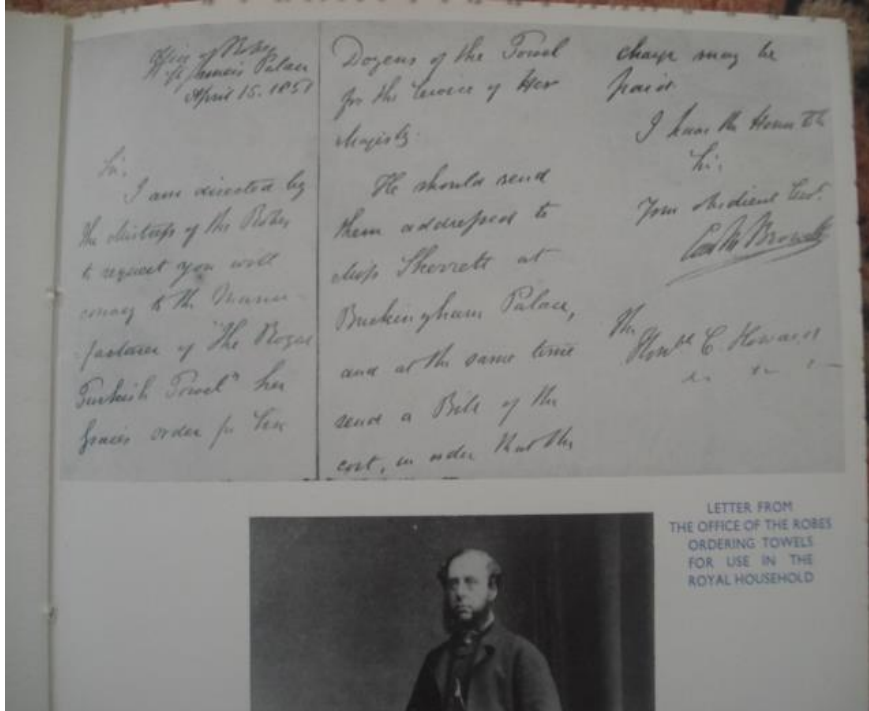 Office of Robes
St. James's Palace
April 15. 1851
Sir,
I am directed by
the Mistress of the Robes
to request you will
convey to the Manu-
facturer of "The Royal
Turkish Towel" her
Graces order for
Dozens of the Towel
for the Service of Her
Majesty.
He should send
them addressed to
Miss Skerrett at
Buckingham Palace,
and at the same time
send a Bill of the
cost, in order that the
charge may be
paid.
I have the Honor to be
Sir,
Your obedient Servt.
The
Honble C. Howard
LETTER FROM
THE OFFICE OF THE ROBES
ORDERING TOWELS
FOR USE IN THE
ROYAL HOUSEHOLD